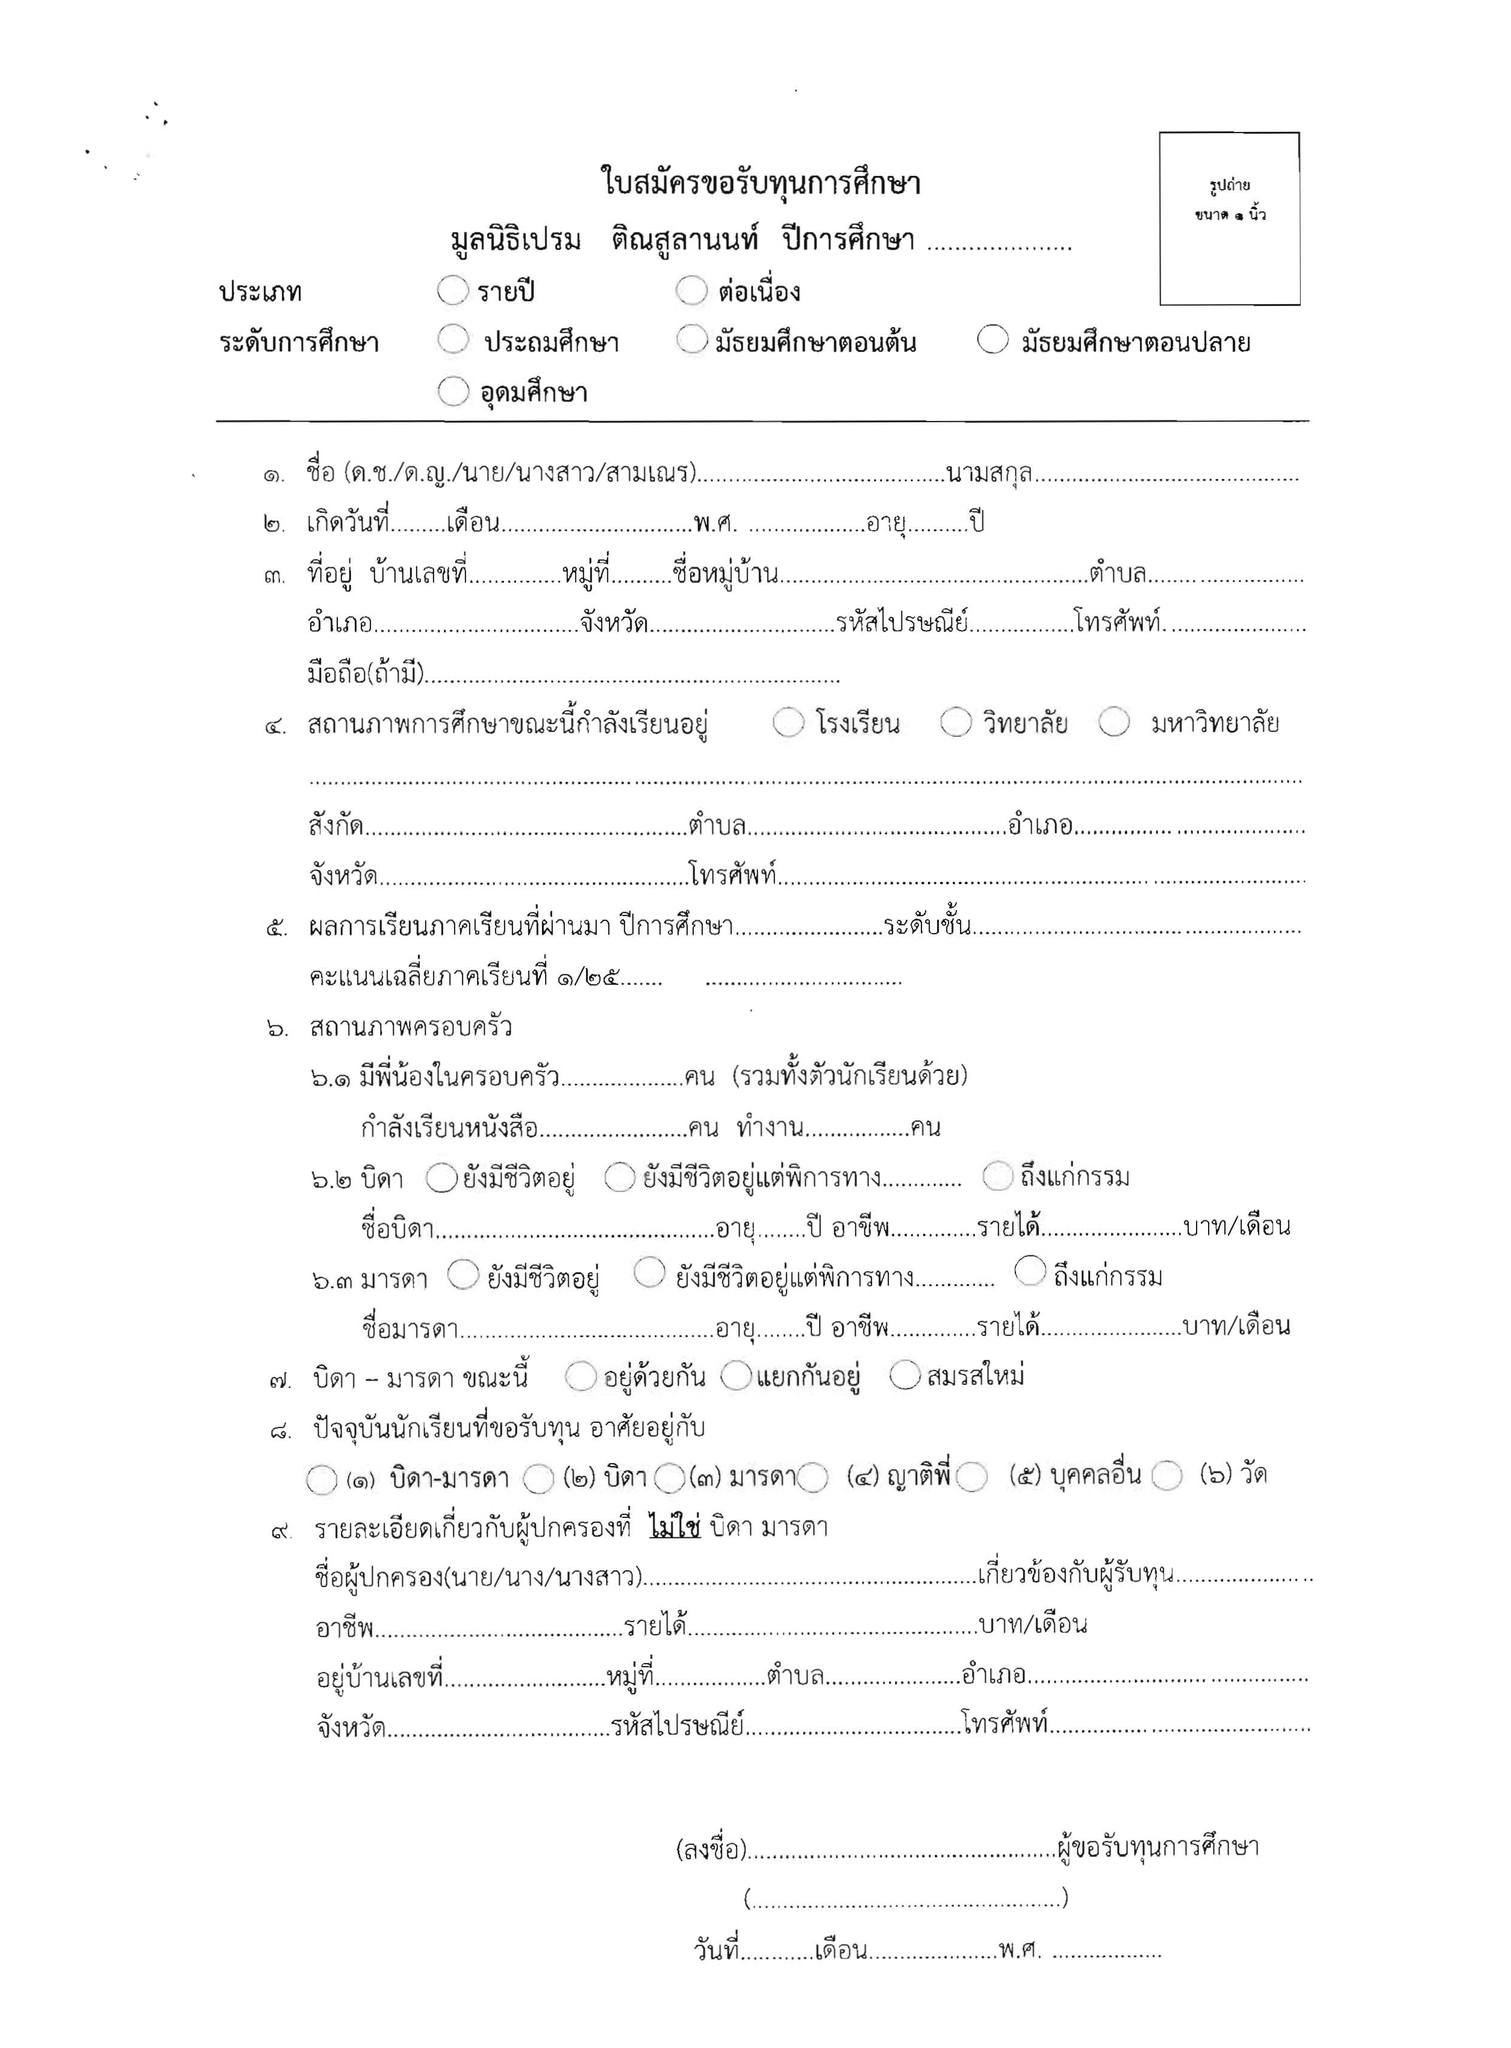 รูปถ่าย
ขนาด ๑ นิ้ว
ใบสมัครขอรับทุนการศึกษา
มูลนิธิเปรม ติณสูลานนท์ ปีการศึกษา .....................
ประเภท ◯ รายปี ◯ ต่อเนื่อง
ระดับการศึกษา ◯ ประถมศึกษา ◯ มัธยมศึกษาตอนต้น ◯ มัธยมศึกษาตอนปลาย
◯ อุดมศึกษา
๑. ชื่อ (ด.ช./ด.ญ./นาย/นางสาว/สามเณร)........................................นามสกุล...........................................
๒. เกิดวันที่.........เดือน...............................พ.ศ. ...................อายุ..........ปี
๓. ที่อยู่ บ้านเลขที่...............หมู่ที่..........ชื่อหมู่บ้าน..................................................ตำบล.........................
อำเภอ.................................จังหวัด..............................รหัสไปรษณีย์.................โทรศัพท์.......................
มือถือ(ถ้ามี)...................................................................
๔. สถานภาพการศึกษาขณะนี้กำลังเรียนอยู่ ◯ โรงเรียน ◯ วิทยาลัย ◯ มหาวิทยาลัย
................................................................................................................................
สังกัด....................................................ตำบล..........................................อำเภอ.....................................
จังหวัด..................................................โทรศัพท์.....................................................................................
๕. ผลการเรียนภาคเรียนที่ผ่านมา ปีการศึกษา........................ระดับชั้น.....................................................
คะแนนเฉลี่ยภาคเรียนที่ ๑/๒๕....... ................................
๖. สถานภาพครอบครัว
๖.๑ มีพี่น้องในครอบครัว....................คน (รวมทั้งตัวนักเรียนด้วย)
กำลังเรียนหนังสือ........................คน ทำงาน.................คน
๖.๒ บิดา ◯ ยังมีชีวิตอยู่ ◯ ยังมีชีวิตอยู่แต่พิการทาง............. ◯ ถึงแก่กรรม
ชื่อบิดา.............................................อายุ........ปี อาชีพ..............รายได้.......................บาท/เดือน
๖.๓ มารดา ◯ ยังมีชีวิตอยู่ ◯ ยังมีชีวิตอยู่แต่พิการทาง............. ◯ ถึงแก่กรรม
ชื่อมารดา.........................................อายุ........ปี อาชีพ..............รายได้.......................บาท/เดือน
๗. บิดา – มารดา ขณะนี้ ◯ อยู่ด้วยกัน ◯ แยกกันอยู่ ◯ สมรสใหม่
๘. ปัจจุบันนักเรียนที่ขอรับทุน อาศัยอยู่กับ
◯ (๑) บิดา-มารดา ◯ (๒) บิดา ◯ (๓) มารดา ◯ (๔) ญาติพี่ ◯ (๕) บุคคลอื่น ◯ (๖) วัด
๙. รายละเอียดเกี่ยวกับผู้ปกครองที่ ไม่ใช่ บิดา มารดา
ชื่อผู้ปกครอง(นาย/นาง/นางสาว)......................................................เกี่ยวข้องกับผู้รับทุน......................
อาชีพ........................................รายได้...............................................บาท/เดือน
อยู่บ้านเลขที่..........................หมู่ที่..................ตำบล......................อำเภอ.............................................
จังหวัด....................................รหัสไปรษณีย์...................................โทรศัพท์..........................................
(ลงชื่อ)..................................................ผู้ขอรับทุนการศึกษา
(..................................................)
วันที่............เดือน.....................พ.ศ. ..................